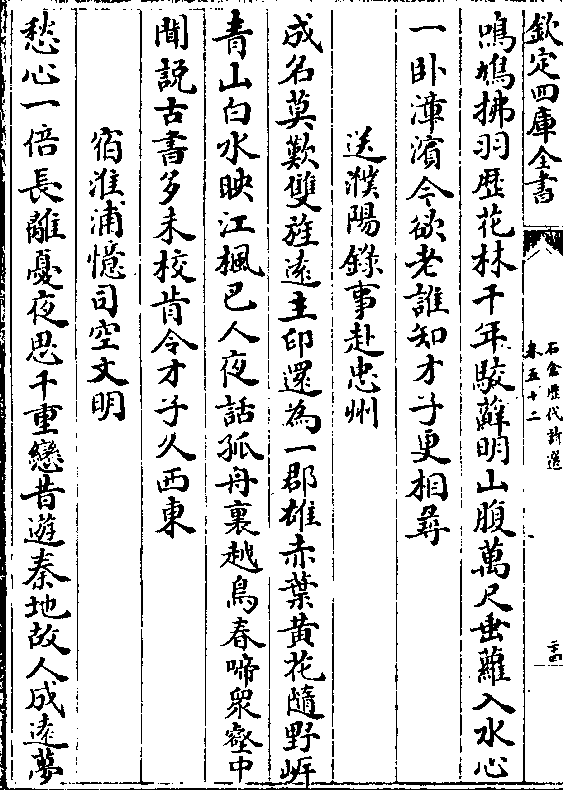 欽定四庫全書
石倉歷代詩選
卷五十二
二十四
鳴鳩拂羽歴花林千年駮蘚明山腹萬尺垂蘿入水心
一卧漳濱今欲老誰知才子更相尋
送濮陽錄事赴忠州
成名莫歎雙旌遠主印還為一郡雄赤葉黄花隨野岸
青山白水映江楓巴人夜話孤舟裏越鳥春啼衆壑中
聞説古書多未校肯令才子久西東
宿淮浦憶司空文明
愁心一倍長離憂夜思千重戀昔遊秦地故人成遠夢